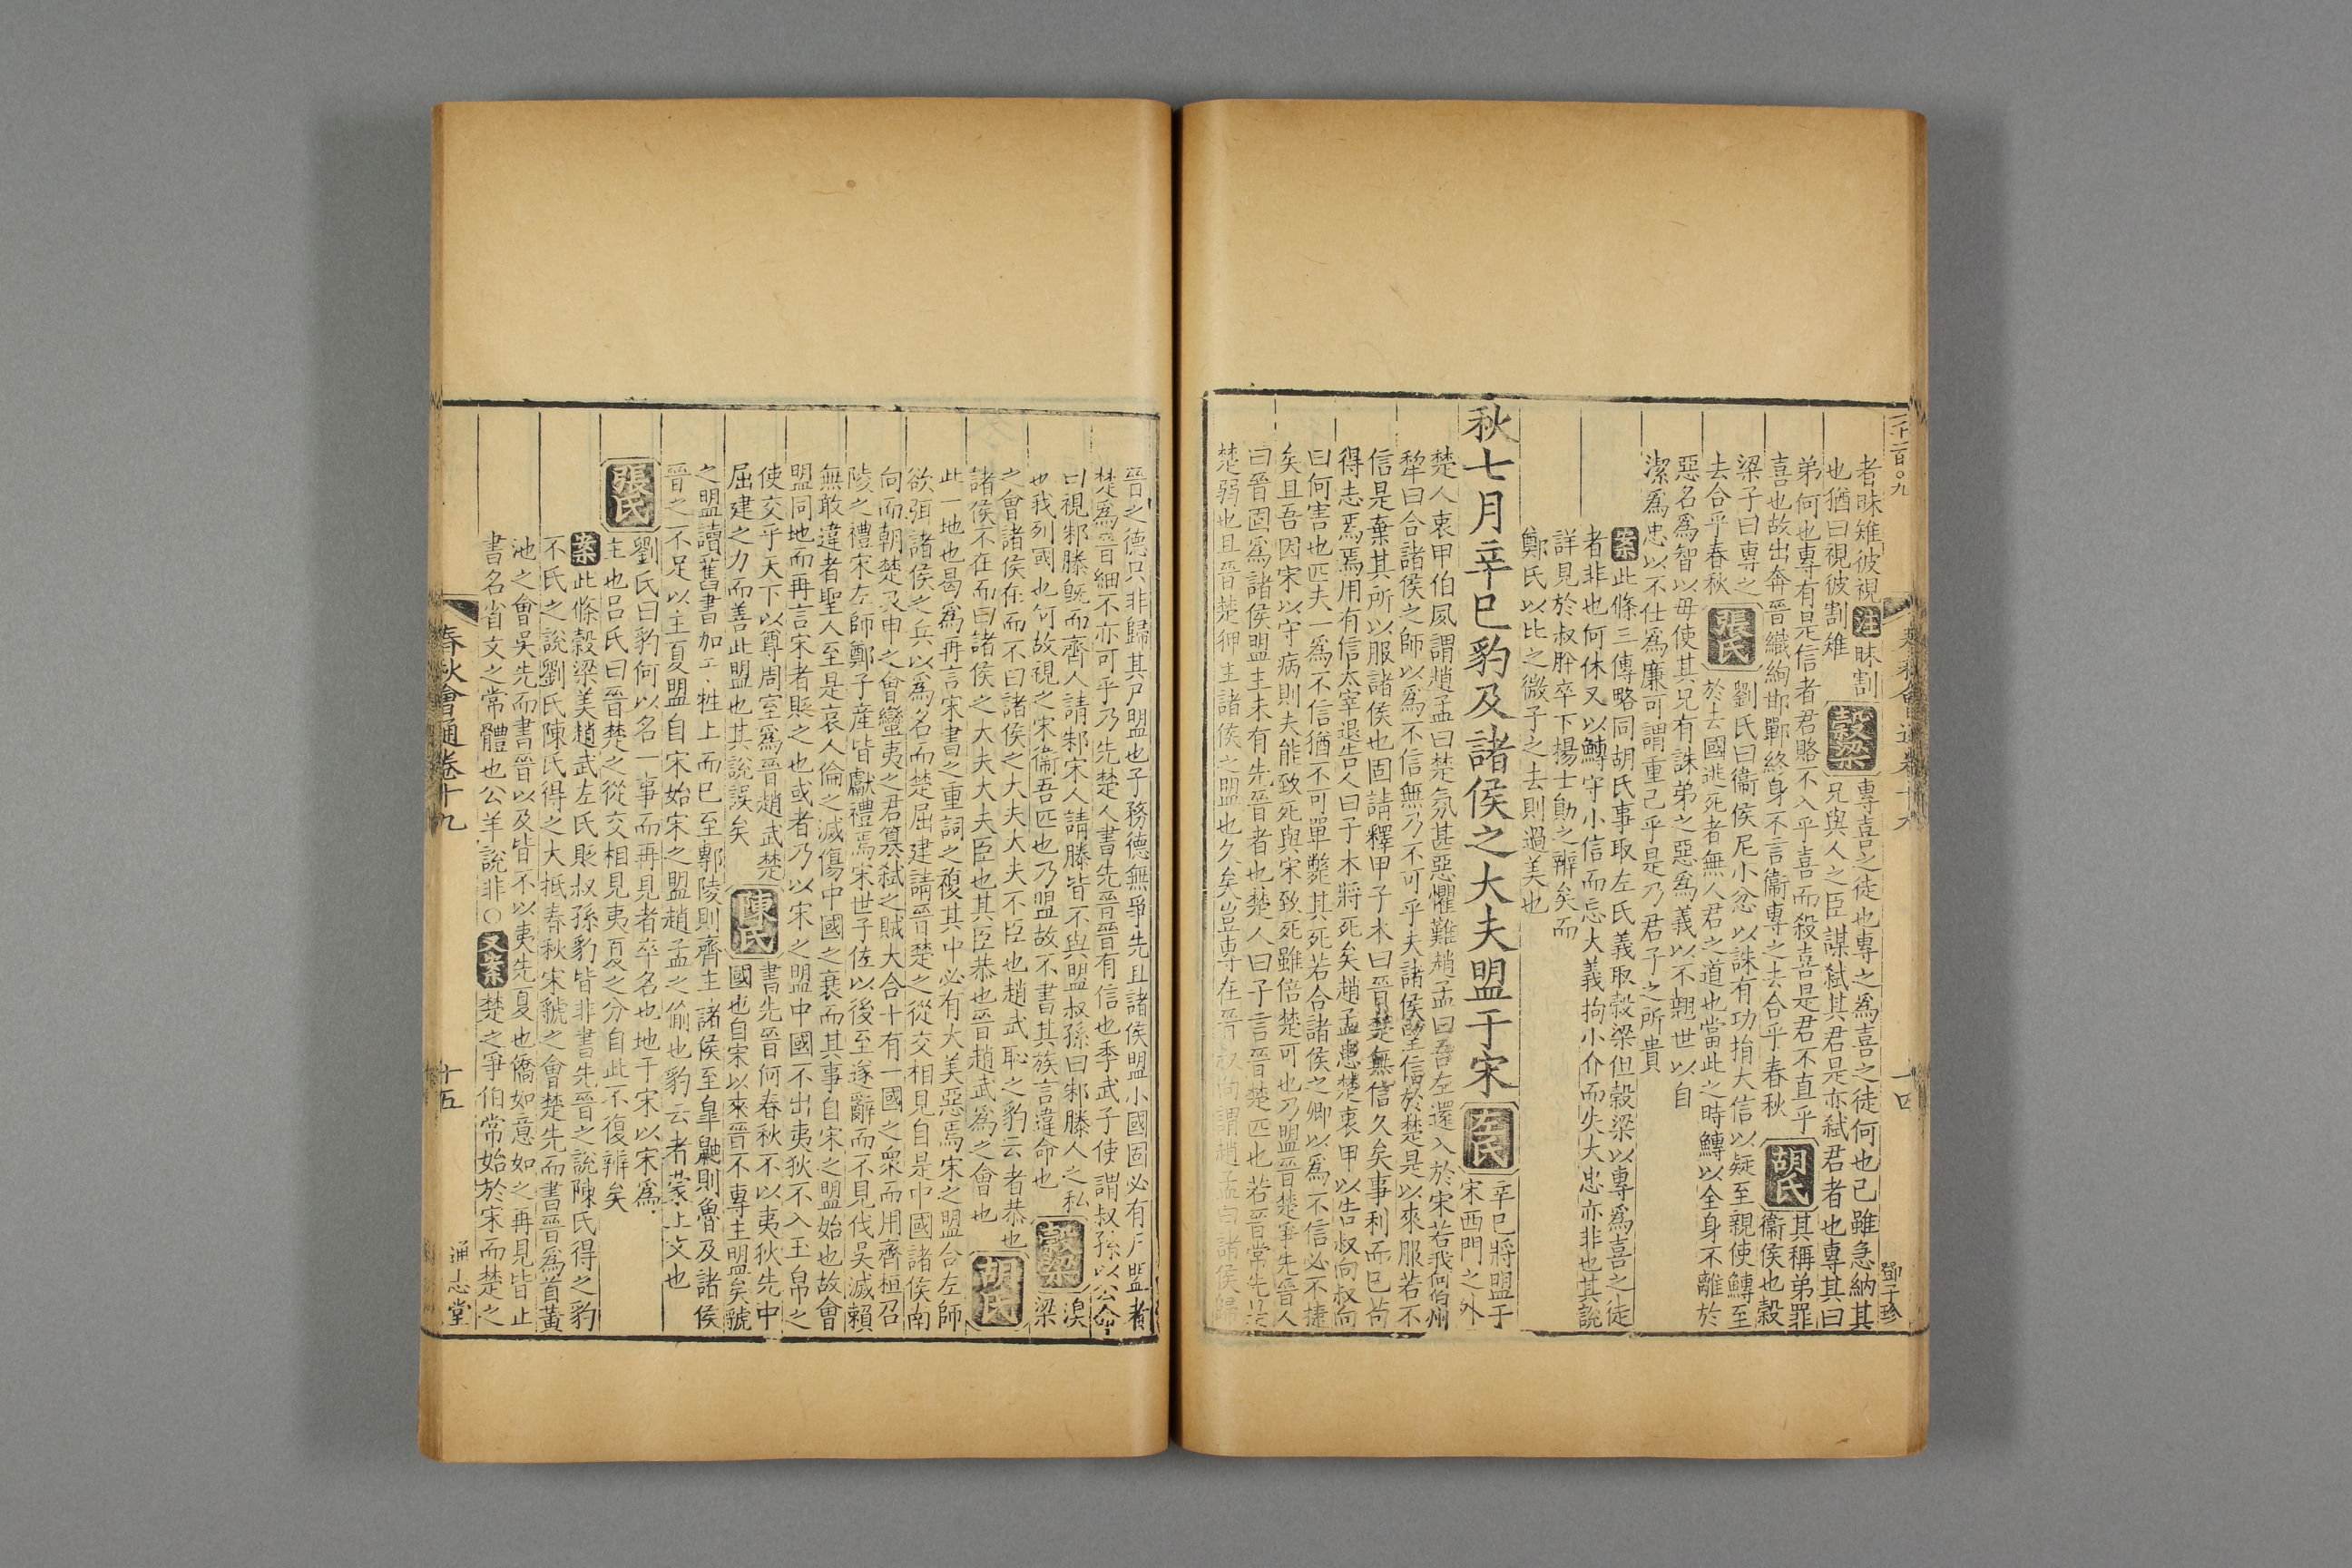 春秋會通卷十九 十四 鄧子珍
者昧雉彼視注昧割穀梁專喜之徒也專之為喜之徒何也己雖急納其
也猶曰視彼割雉兄與人之臣謀弑其君是亦弑君者也專其曰
弟何也專有是信者君賂不入乎喜而殺喜是君不直乎胡氏其稱弟罪
喜也故出奔晉織絇邯鄲終身不言衞專之去合乎春秋衞侯也穀
梁子曰專之張氏劉氏曰衞侯尼小忿以誅有功捐大信以疑至親使鱄至
去合乎春秋於去國逃死者無人君之道也當此之時鱄以全身不離於
惡名為智以毋使其兄有誅弟之惡為義以不翹世以自
潔為忠以不仕為廉可謂重己乎是乃君子之所貴
案此條三傳略同胡氏事取左氏義取穀梁但穀梁以專為喜之徒
者非也何休又以鱄守小信而忘大義拘小介而失大忠亦非也其說
詳見於叔肸卒下揚士勛之辨矣而
鄭氏以比之微子之去則過美也
秋七月辛巳豹及諸侯之大夫盟于宋左氏辛巳將盟于
宋西門之外
楚人衷甲伯夙謂趙孟曰楚氛甚惡懼難趙孟曰吾左還入於宋若我何伯州
犂曰合諸侯之師以為不信無乃不可乎夫諸侯望信於楚是以來服若不
信是棄其所以服諸侯也固請釋甲子木曰晉楚無信久矣事利而已苟
得志焉焉用有信太宰退告人曰子木將死矣趙孟患楚衷甲以告叔向叔向
曰何害也匹夫一為不信猶不可單斃其死若合諸侯之卿以為不信必不捷
矣且吾因宋以守病則夫能致死與宋致死雖倍楚可也乃盟晉楚爭先晉人
曰晉固為諸侯盟主未有先晉者也楚人曰子言晉楚匹也若晉常先是
楚弱也且晉楚狎主諸侯之盟也久矣豈專在晉叔向謂趙孟曰諸侯歸
晉之德只非歸其尸盟也子務德無爭先且諸侯盟小國固必有尸盟者
楚為晉細不亦可乎乃先楚人書先晉晉有信也季武子使謂叔孫以公命
曰視邾滕旣而齊人請邾宋人請滕皆不與盟叔孫曰邾滕人之私穀梁湨
也我列國也何故視之宋衞吾匹也乃盟故不書其族言違命也梁
之會諸侯在而不曰諸侯之大夫大夫不臣也趙武恥之豹云者恭也胡氏
諸侯不在而曰諸侯之大夫大夫臣也其臣恭也晉趙武為之會也
此一地也曷為再言宋書之重詞之複其中必有大美惡焉宋之盟合左師
欲弭諸侯之兵以為名而楚屈建請晉楚之從交相見自是中國諸侯南
向而朝楚及申之會蠻夷之君簒弑之賊大合十有一國之衆而用齊桓召
陵之禮宋左師鄭子產皆獻禮焉宋世子佐以後至遂辭而不見伐吳滅賴
無敢違者聖人至是哀人倫之滅傷中國之衰而其事自宋之盟始也故會
盟同地而再言宋者貶之也或者乃以宋之盟中國不出夷狄不入玉帛之
使交乎天下以尊周室為晉趙武楚陳氏書先晉何春秋不以夷狄先中
屈建之力而善此盟也其說誤矣國也自宋以來晉不專主盟矣虢
之盟讀舊書加于牲上而已至鄟陵則齊主諸侯至皐鼬則魯及諸侯
晉之不足以主夏盟自宋始宋之盟趙孟之偷也豹云者蒙上文也
張氏劉氏曰豹何以名一事而再見者卒名也地于宋以宋為
主也呂氏曰晉楚之從交相見夷夏之分自此不復辨矣
案此條穀梁美趙武左氏貶叔孫豹皆非書先晉之說陳氏得之豹
不氏之說劉氏陳氏得之大抵春秋宋虢之會楚先而書晉為首黃
池之會吳先而書晉以及皆不以夷先夏也僑如意如之再見皆止
書名省文之常體也公羊說非○又案楚之爭伯常始於宋而楚之
春秋會通卷十九 十五 通志堂